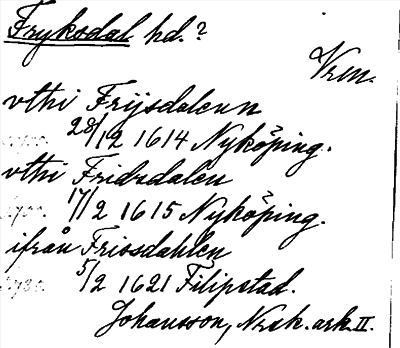 Fryksdal hd.?
Vrm.
vthi Frijsdalenn
28/12 1614 Nyköping.
vthi Fridzdalen
17/2 1615 Nyköping.
ifrån Frissdahlen
5/2 1621 Filipstad.
Johansson, Nrsk. ark. II.